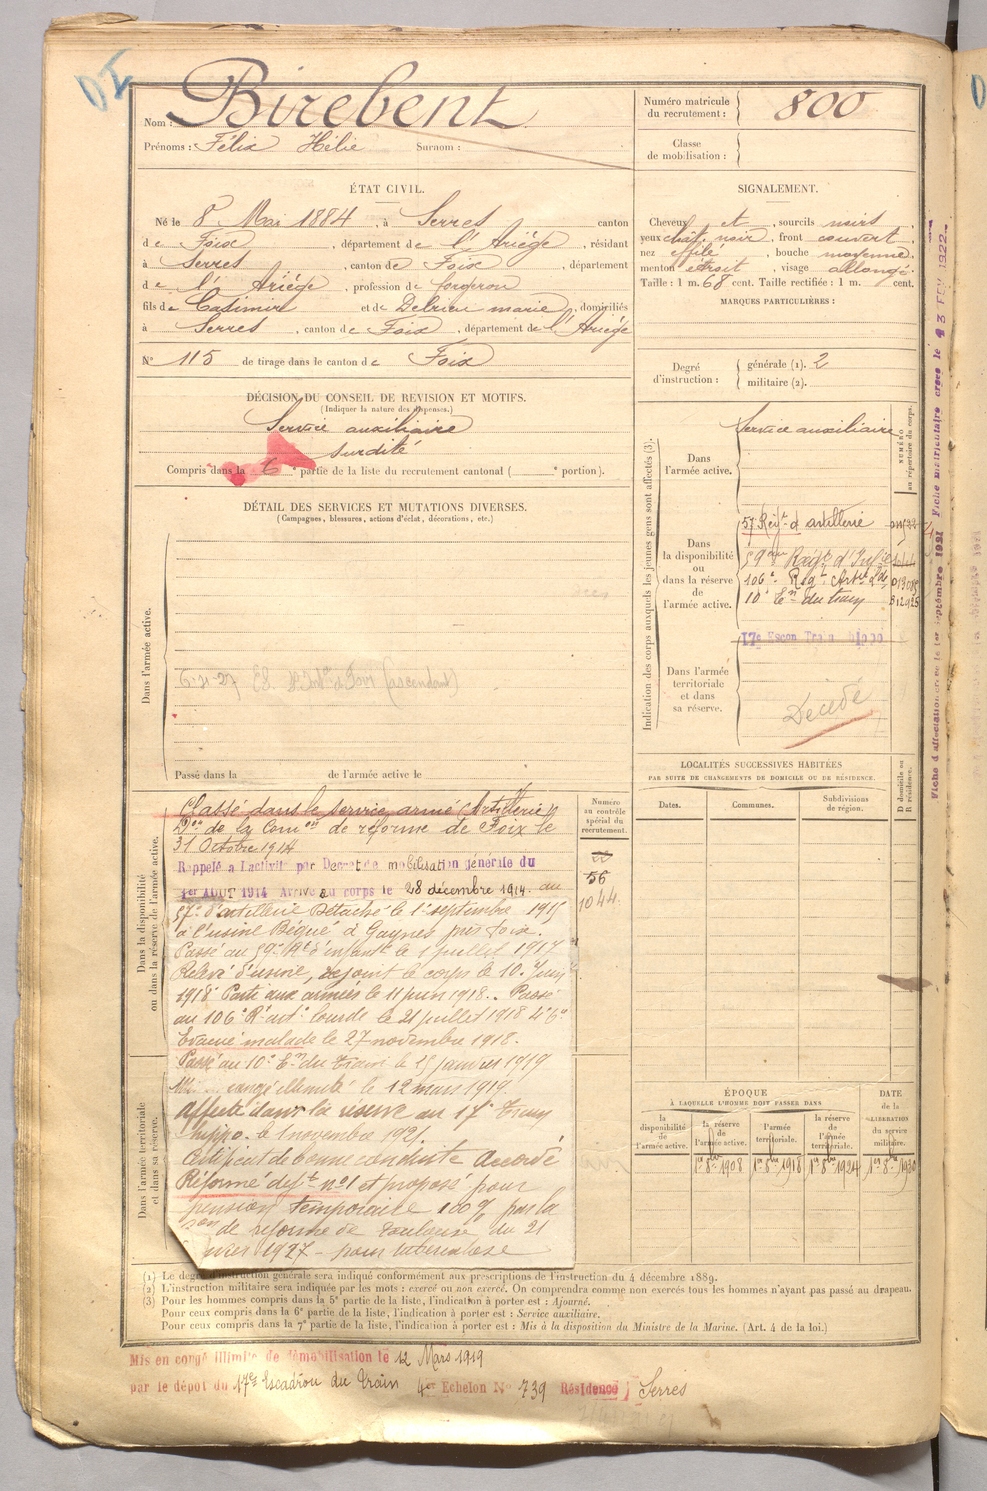 Nom : Birebent
Prénoms : Félix Hélie Surnom :
Numéro matricule du recrutement : 800
Classe de mobilisation :
ÉTAT CIVIL.
Né le 8 Mai 1884, à Serres canton
de Foix, département de l'Ariège, résidant
à Serres, canton de Foix, département
de l'Ariège, profession de forgeron
fils de Casimir et de Delrieu marie, domiciliés
à Serres, canton de Foix, département de l'Ariège
N° 115 de tirage dans le canton de Foix
SIGNALEMENT.
Cheveux et, sourcils noirs
yeux chât. noir, front couvert,
nez effilé, bouche moyenne,
menton étroit, visage allongé.
Taille : 1 m. 68 cent. Taille rectifiée : 1 m. cent.
MARQUES PARTICULIÈRES :
Degré d'instruction : générale (1). 2
militaire (2).
DÉCISION DU CONSEIL DE REVISION ET MOTIFS.
(Indiquer la nature des dispenses.)
Service auxiliaire
surdité
Compris dans la 6e partie de la liste du recrutement cantonal ( e portion).
DÉTAIL DES SERVICES ET MUTATIONS DIVERSES.
(Campagnes, blessures, actions d'éclat, décorations, etc.)
Dans l'armée active.
Passé dans la de l'armée active le
Indication des corps auxquels les jeunes gens sont affectés (3).
NUMÉRO au répertoire du corps.
Dans l'armée active.
Service auxiliaire
Dans la disponibilité ou dans la réserve de l'armée active.
57 Régt d'artillerie
59em Régt d'Inf
106e Régt Artie Lde
10e Em du train
17e Escon Train hippo
Dans l'armée territoriale et dans sa réserve.
Décédé
LOCALITÉS SUCCESSIVES HABITÉES
PAR SUITE DE CHANGEMENTS DE DOMICILE OU DE RÉSIDENCE.
Dates. Communes. Subdivisions de région. D domicile ou R résidence.
Dans la disponibilité ou dans la réserve de l'armée active.
Numéro au contrôle spécial du recrutement.
56
1044
Classé dans le service armé (Artillerie)
Don de la Comon de réforme de Foix le
31 Octobre 1914
Rappelé à l'activité par Decret de mobilisation générale du
1er AOUT 1914 Arrivé au corps le 28 décembre 1914. au
57e d'artillerie Détaché le 1er septembre 1915
à l'usine Bégué à Gaynes près Foix.
Passé au 59e Rt d'infantie le 1 juillet 1917
Relevé d'usine, rejoint le corps le 10. Juin
1918 Parti aux armées le 11 juin 1918. Passé
au 106e Rt artie lourde le 21 juillet 1918
Evacué malade le 27 novembre 1918.
Passé au 10e Em du Train le 25 janvier 1919
congé illimité le 12 mars 1919
Affecté dans la réserve au 17e Train
hippo. le 1 novembre 1921.
Certificat de bonne conduite Accordé
Réformé deft n°1 et proposé pour
pension temporaire 100% par la
con de réforme de Toulouse du 21
1927 - pour tuberculose
Dans l'armée territoriale et dans sa réserve.
ÉPOQUE
À LAQUELLE L'HOMME DOIT PASSER DANS
la disponibilité de l'armée active.
la réserve de l'armée active.
l'armée territoriale.
la réserve de l'armée territoriale.
DATE de la LIBÉRATION du service militaire.
1er 8bre 1908 1er 8bre 1918 1er 8bre 1924 1er 8bre 1930
(1) Le degré d'instruction générale sera indiqué conformément aux prescriptions de l'instruction du 4 décembre 1889.
(2) L'instruction militaire sera indiquée par les mots : exercé ou non exercé. On comprendra comme non exercés tous les hommes n'ayant pas passé au drapeau.
(3) Pour les hommes compris dans la 5e partie de la liste, l'indication à porter est : Ajourné.
Pour ceux compris dans la 6e partie de la liste, l'indication à porter est : Service auxiliaire.
Pour ceux compris dans la 7e partie de la liste, l'indication à porter est : Mis à la disposition du Ministre de la Marine. (Art. 4 de la loi.)
Mis en congé illimité de démobilisation le 12 Mars 1919
par le dépôt du 17e Escadron du Train 4er Echelon N° 739 Résidence Serres
Fiche d'affectation créée le 1er septembre 1921 Fiche matriculaire créée le 13 FEV 1922